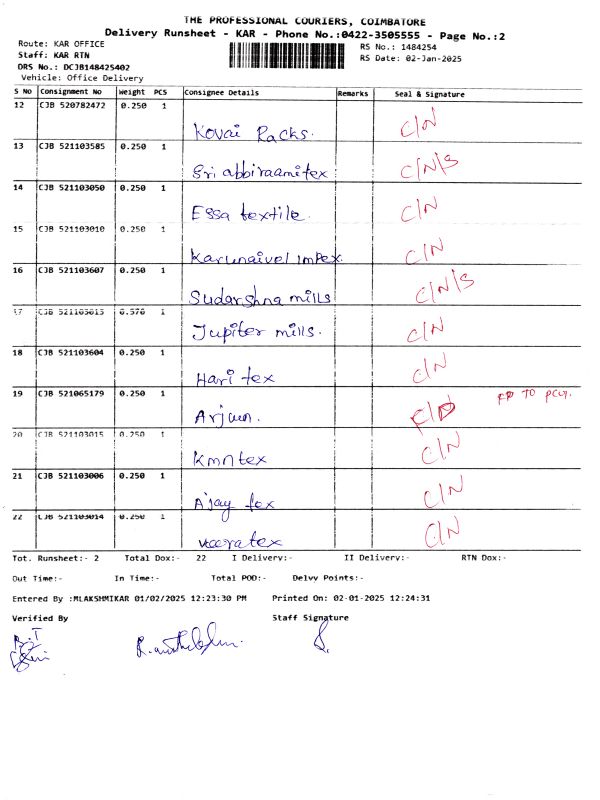 THE PROFESSIONAL COURIERS, COIMBATORE
Delivery Runsheet - KAR - Phone No.:0422-3505555 - Page No.:2
Route: KAR OFFICE
RS No.: 1484254
Staff: KAR RTN
RS Date: 02-Jan-2025
DRS No.: DCJB148425402
Vehicle: Office Delivery
S NO Consignment No Weight PCS Consignee Details Remarks Seal & Signature
12 CJB 520782472 0.250 1
Kovai Racks. C/N
13 CJB 521103585 0.250 1
Sri abbiraamitex C/N/S
14 CJB 521103050 0.250 1
Essa textile. C/N
15 CJB 521103010 0.250 1
Karunaivel impex. C/N
16 CJB 521103607 0.250 1
Sudarshna mills C/N/S
17 CJB 521103013 0.570 1
Jupiter mills. C/N
18 CJB 521103604 0.250 1
Hari tex C/N
19 CJB 521065179 0.250 1
Arjun. TO
20 CJB 521103015 0.250 1
Kmntex C/N
21 CJB 521103006 0.250 1
Ajay tex C/N
22 CJB 521103014 0.250 1
veeratex C/N
Tot. Runsheet:- 2 Total Dox:- 22 I Delivery:- II Delivery:- RTN Dox:-
Out Time:- In Time:- Total POD:- Delvy Points:-
Entered By :MLAKSHMIKAR 01/02/2025 12:23:30 PM Printed On: 02-01-2025 12:24:31
Verified By Staff Signature